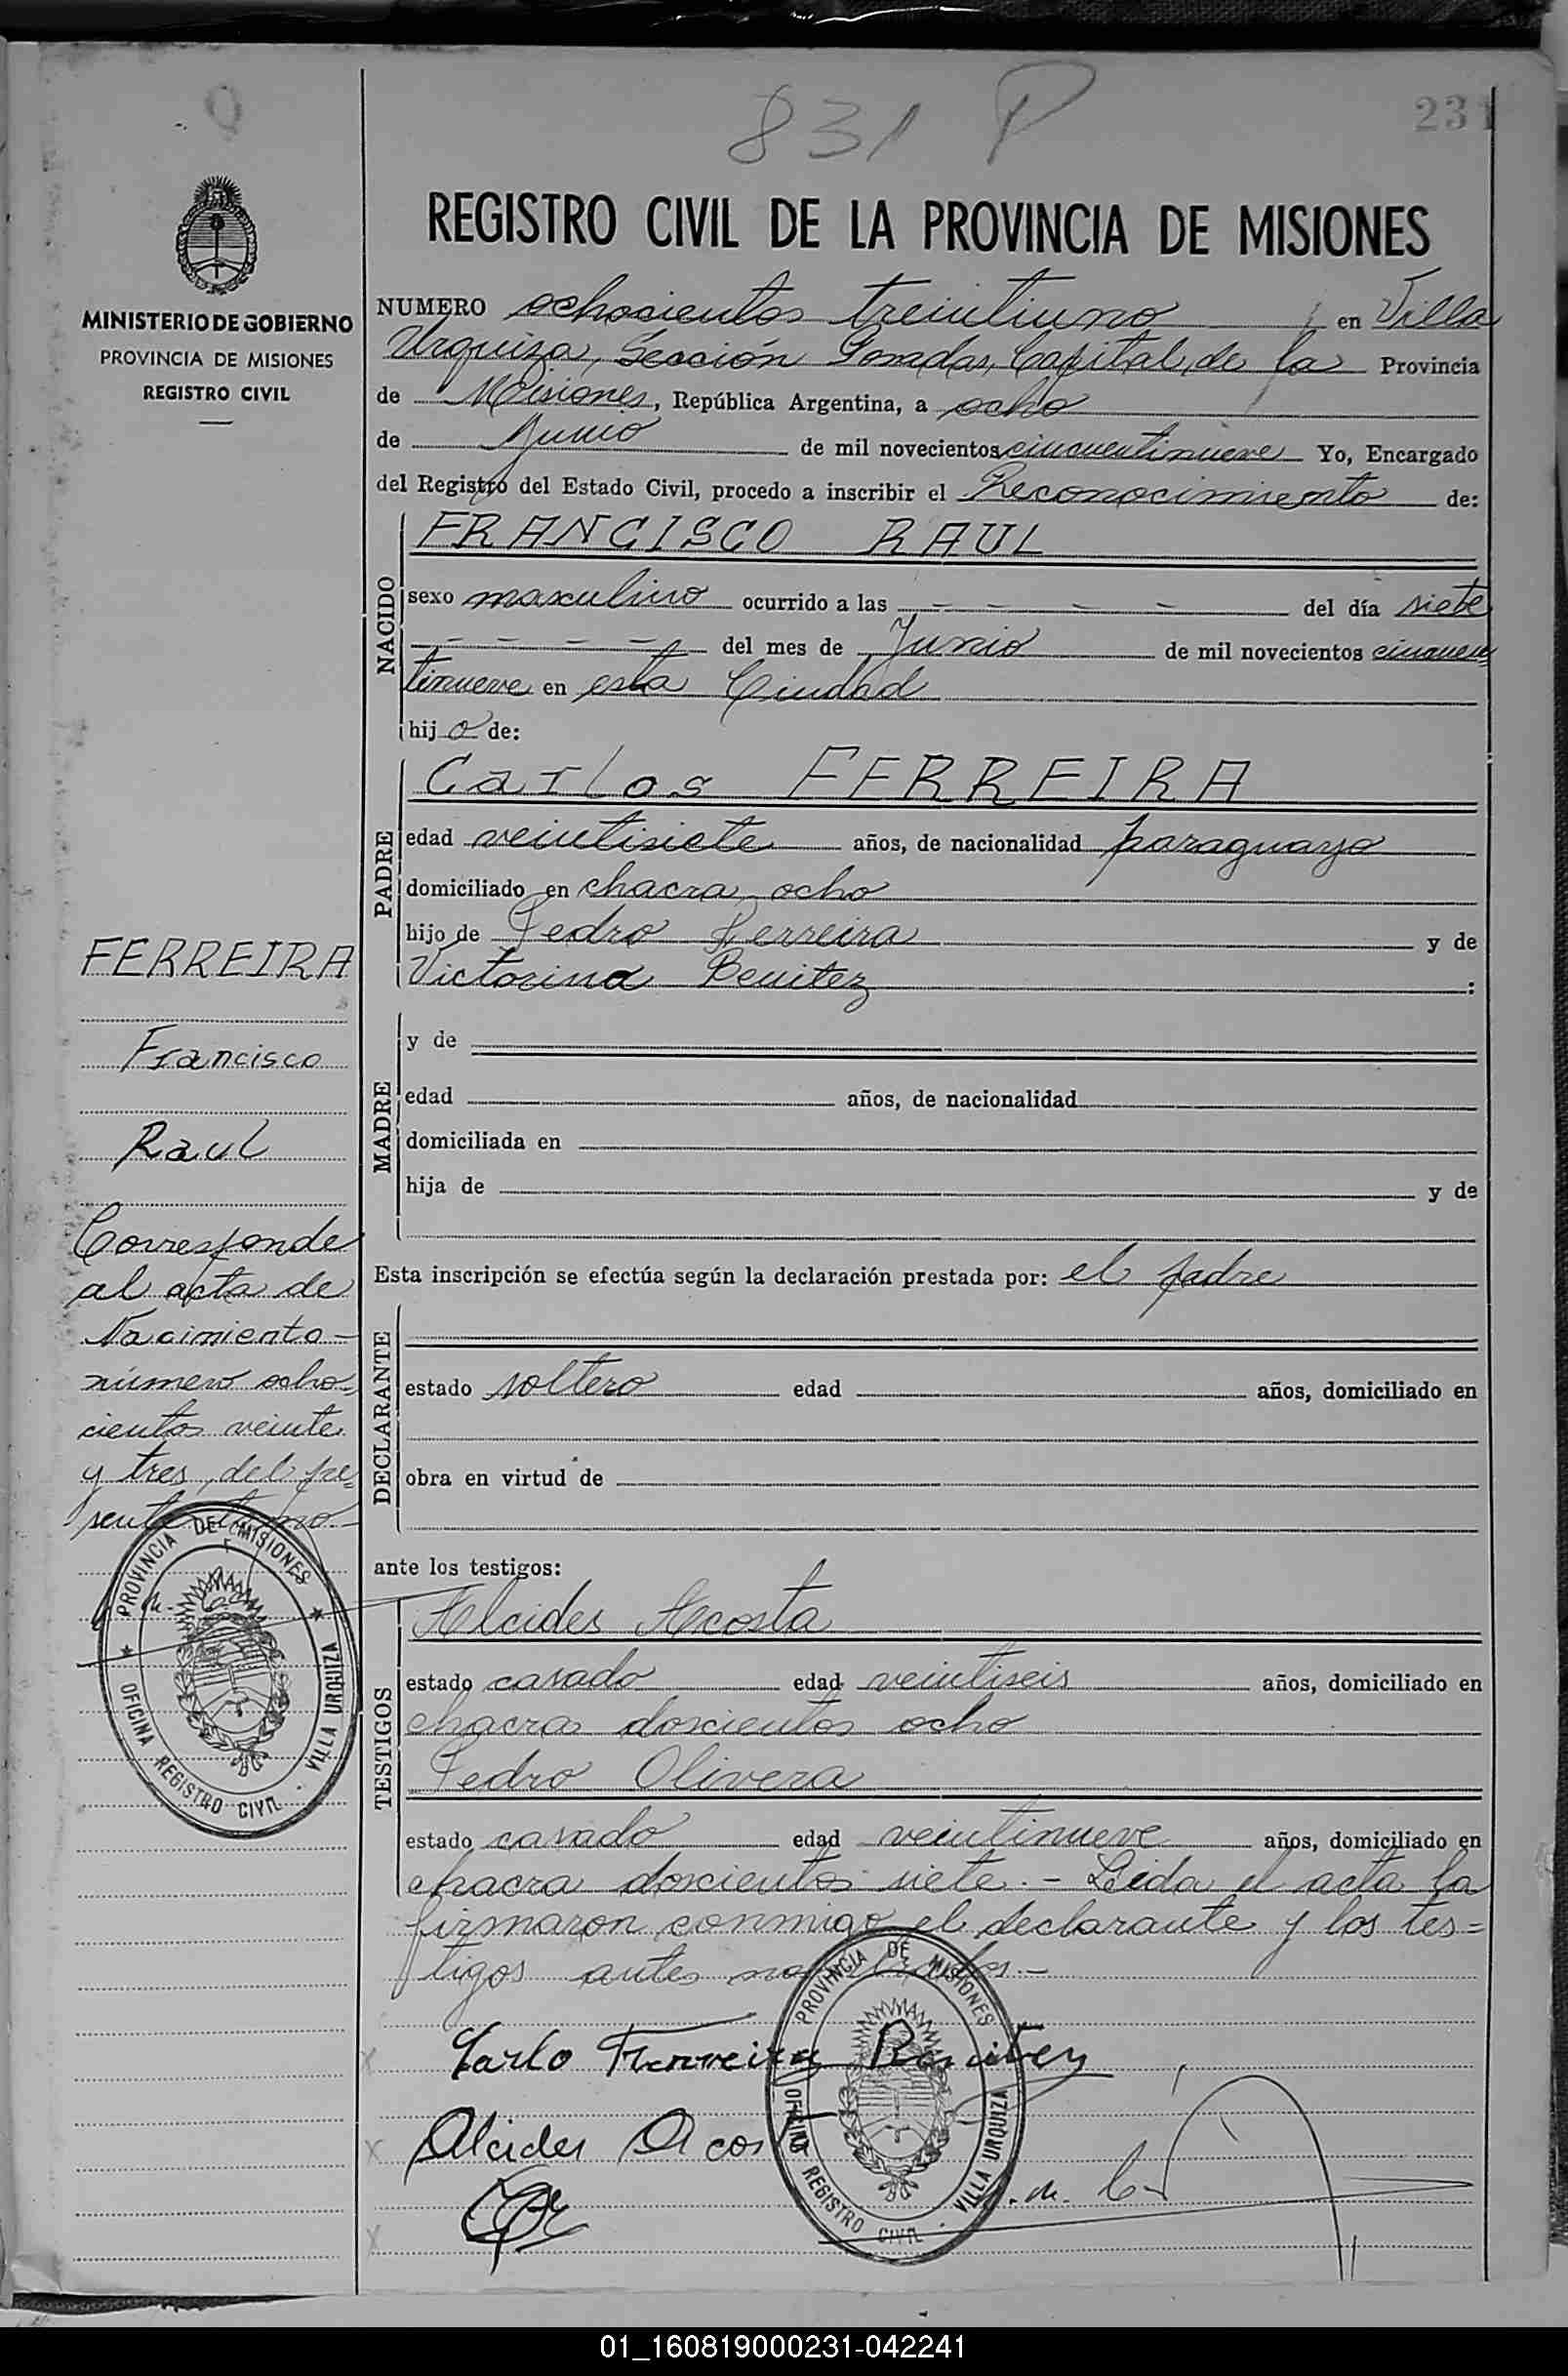 831 P
231
MINISTERIO DE GOBIERNO
PROVINCIA DE MISIONES
REGISTRO CIVIL
REGISTRO CIVIL DE LA PROVINCIA DE MISIONES
NUMERO ochocientos treintiuno en Villa
Urquiza, Sección Posadas, Capital de la Provincia
de Misiones, República Argentina, a ocho
de Junio de mil novecientos cincuentinueve Yo, Encargado
del Registro del Estado Civil, procedo a inscribir el Reconocimiento de:
NACIDO
FRANCISCO RAUL
sexo masculino ocurrido a las - - - - del día siete
- - - - del mes de Junio de mil novecientos cincuen=
tinueve en esta Ciudad
hijo de:
PADRE
Carlos FERREIRA
edad veintisiete años, de nacionalidad paraguayo
domiciliado en chacra ocho
hijo de Pedro Ferreira y de
Victorina Benitez :
MADRE
y de
edad años, de nacionalidad
domiciliada en
hija de y de
Esta inscripción se efectúa según la declaración prestada por: el padre
DECLARANTE
estado soltero edad años, domiciliado en
obra en virtud de
ante los testigos:
TESTIGOS
Alcides Acosta
estado casado edad veintiseis años, domiciliado en
chacra doscientos ocho
Pedro Olivera
estado casado edad veintinueve años, domiciliado en
chacra doscientos siete.- Leida el acta la
firmaron conmigo el declarante y los tes=
tigos antes
Carlo Ferreira Benitez
Alcides Acos
PROVINCIA DE MISIONES
OFICINA REGISTRO CIVIL - VILLA URQUIZA
FERREIRA
Francisco
Raul
Corresponde
al acta de
Nacimiento-
número ocho=
cientos veinte
y tres, del pre=
sente tomo.-
PROVINCIA DE MISIONES
OFICINA REGISTRO CIVIL - VILLA URQUIZA
01_160819000231-042241